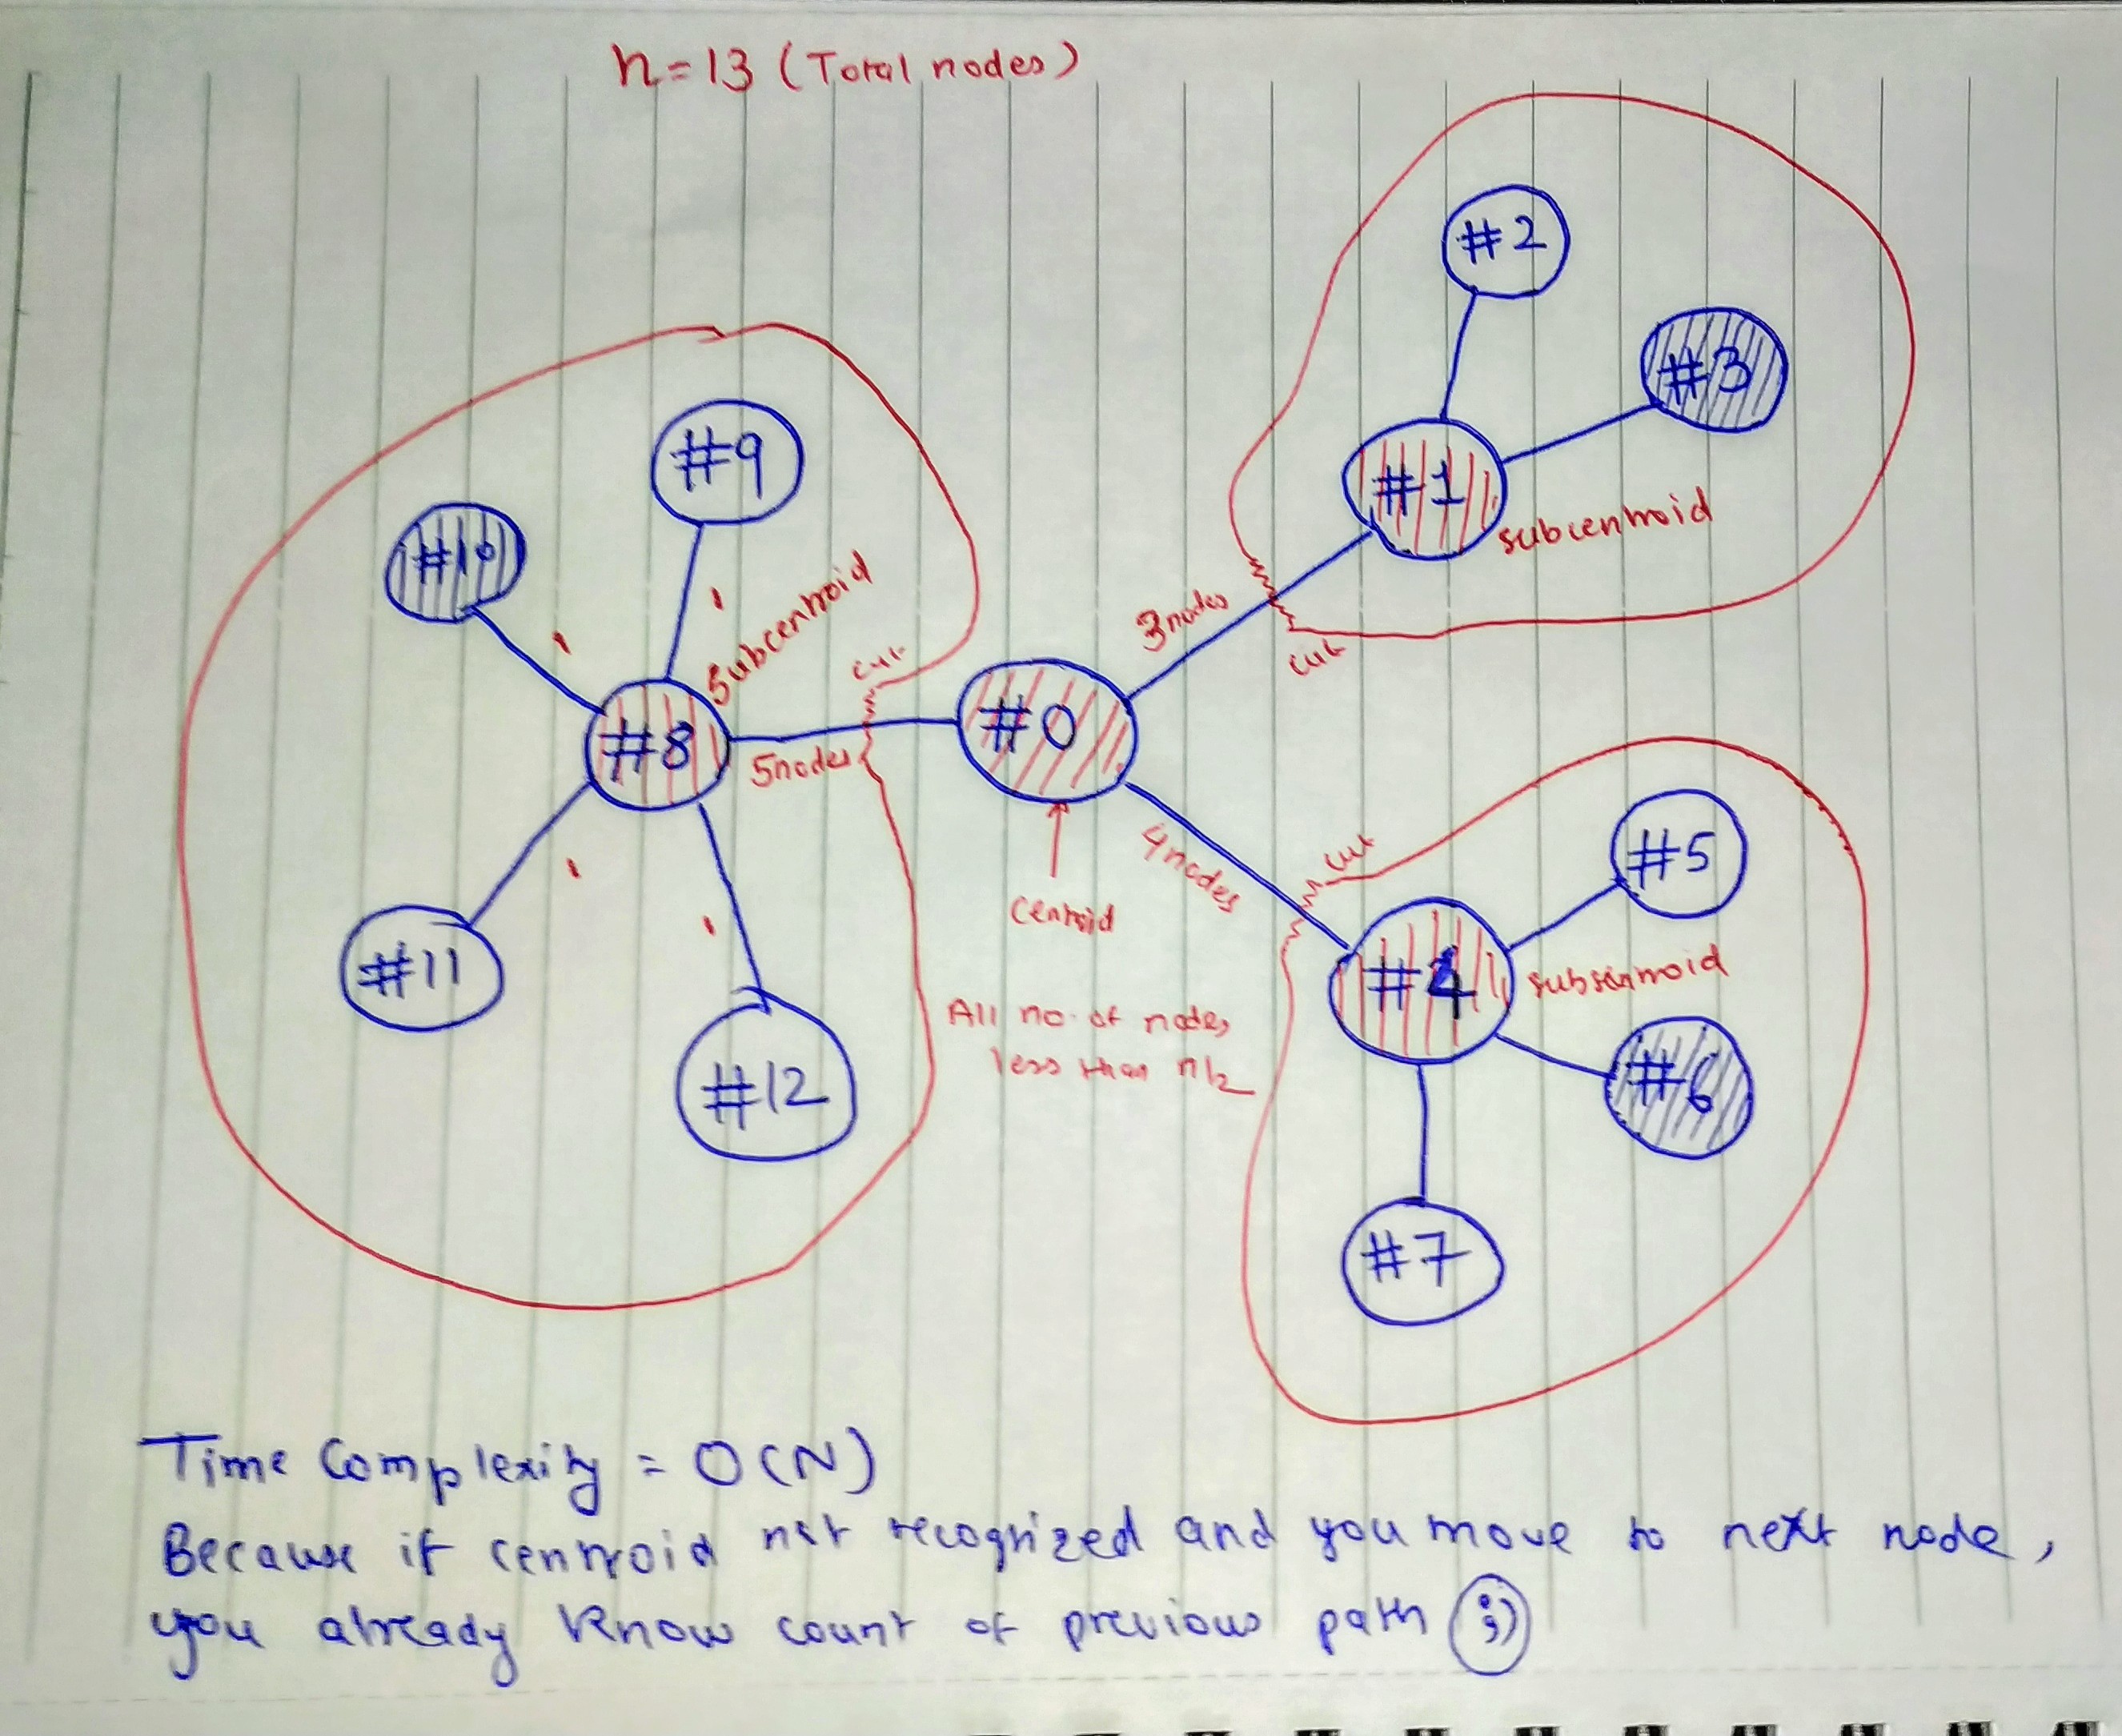 n=13 (Total nodes)
#2
#3
#1
subcentroid
3 nodes
cut
#9
#10
Subcentroid
cut
#8
5 nodes
#0
centroid
4 nodes
cut
#5
#4
subsentroid
#6
#7
#11
#12
All no. of nodes
less than n/2
Time Complexity = O(N)
Because if centroid not recognized and you move to next node,
you already know count of previous path ;)